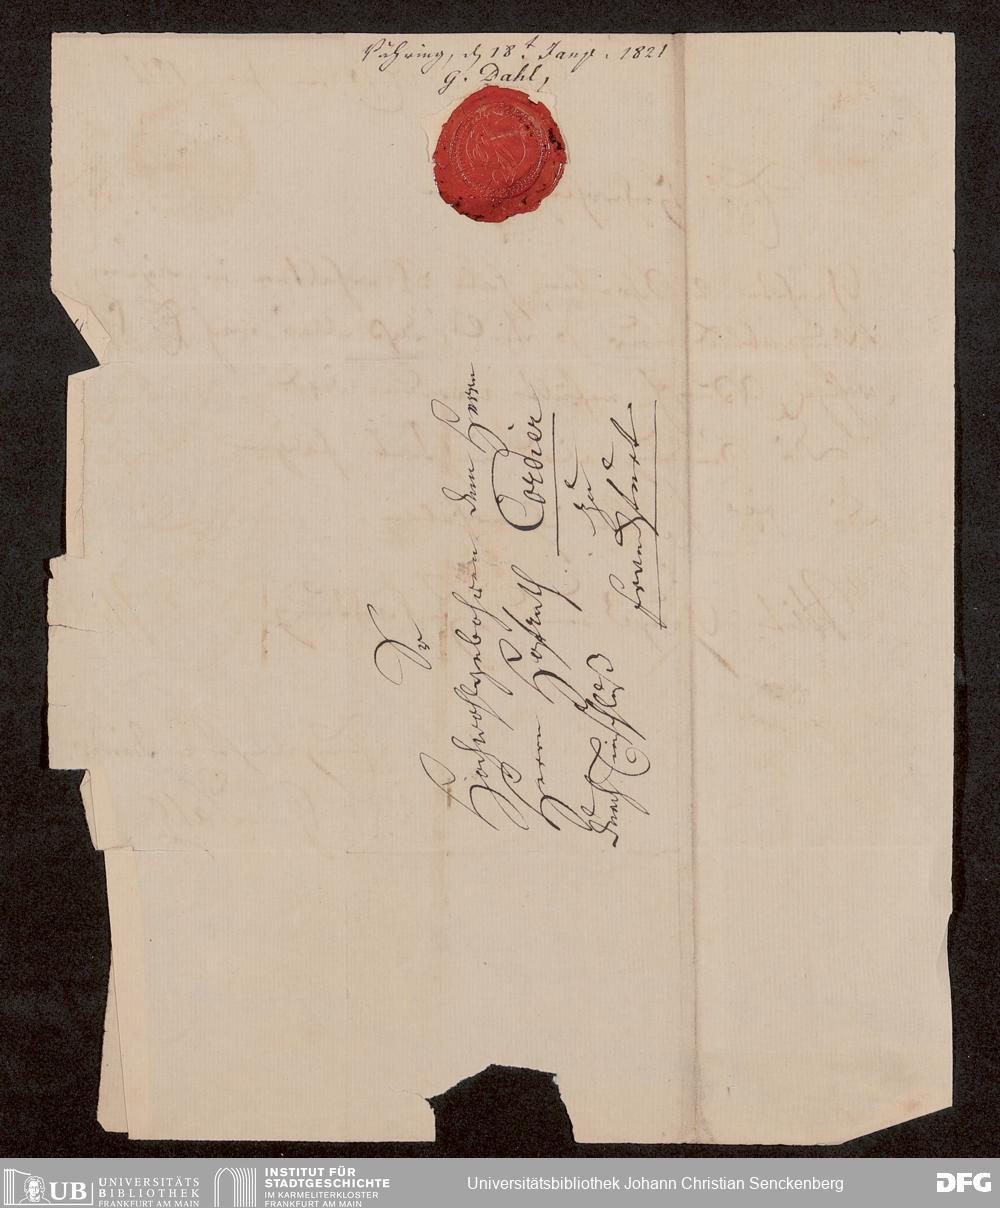 d 18t. Jan. 1821
G. Dahl,
Sr
Hochwohlgebohren dem Herrn
Herrn Hofrath Cordier
zu
Durch Einschluß
Frankfurt
UB
UNIVERSITÄTS
BIBLIOTHEK
FRANKFURT AM MAIN
INSTITUT FÜR
STADTGESCHICHTE
IM KARMELITERKLOSTER
FRANKFURT AM MAIN
Universitätsbibliothek Johann Christian Senckenberg
DFG